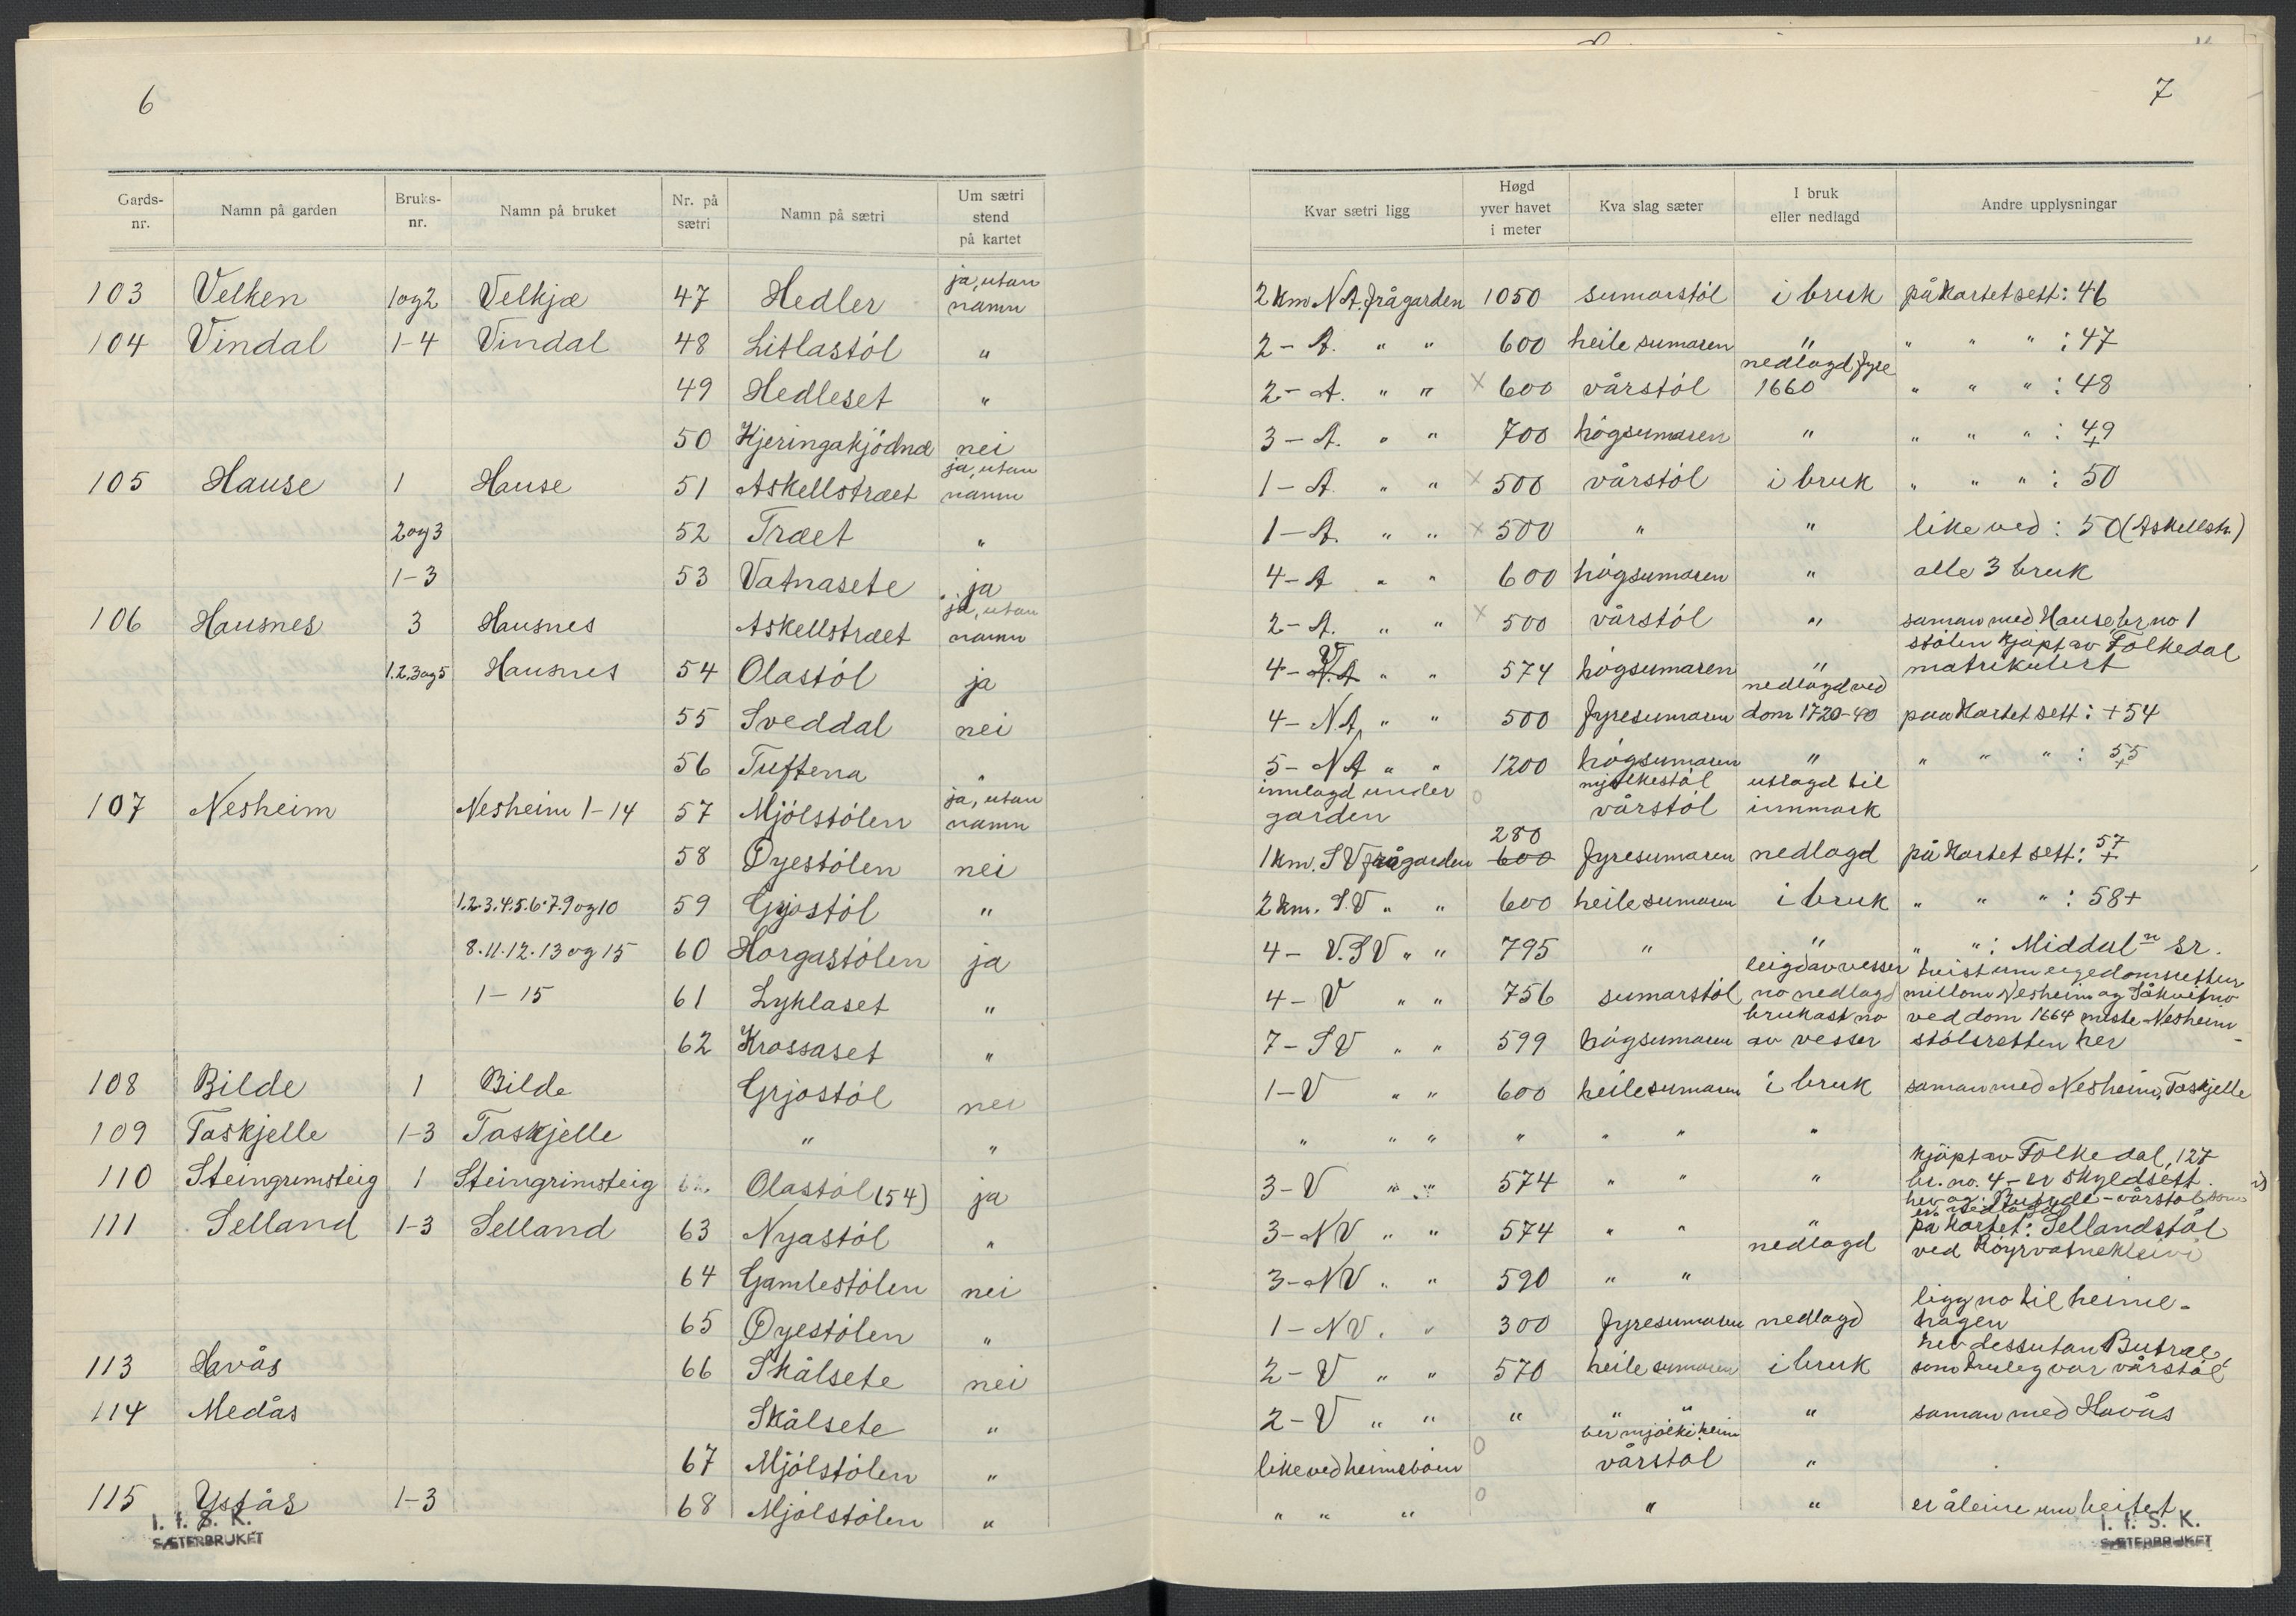 6
Gards-nr. Namn på garden Bruks-nr. Namn på bruket Nr. på sætri Namn på sætri Um sætri stend på kartet
103 Velken 1og2 Velkjæ 47 Hedler ja, utan namn
104 Vindal 1-4 Vindal 48 Litlastól "
49 Hedleset "
50 Kjeringakjódnæ nei
105 Hause 1 Hause 51 Askellstræet ja, utan namn
2og3 52 Træet "
1-3 53 Vatnasete ja
106 Hausnes 3 Hausnes Askellstræet ja, utan namn
1.2.3og5 Hausnes 54 Olastól ja
55 Sveddal nei
56 Tuftena "
107 Nesheim Nesheim 1-14 57 Mjólstólen ja, utan namn
58 Øyestólen nei
1.2.3.4.5.6.7.9og10 59 Grjostól "
8.11.12.13 og 15 60 Horgastólen ja
1-15 61 Lyklaset "
62 Krossaset "
108 Bilde 1 Bilde Grjostól nei
109 Taskjelle 1-3 Taskjelle " "
110 Steingrimsteig 1 Steingrimsteig Olastól (54) ja
111 Selland 1-3 Selland 63 Nyastól "
64 Gamlestólen nei
65 Øyestólen "
113 Havås 66 Skålsete nei
114 Medås Skålsete "
67 Mjólstólen "
115 Ystås 1-3 68 Mjólstólen "
I. f. S. K.
SÆTERBRUKET
7
Kvar sætri ligg Høgd yver havet i meter Kva slag sæter I bruk eller nedlagd Andre upplysningar
2 km N.A. frå garden 1050 sumarstól i bruk på kartet sett: 46
2 - A. " " 600 heile sumaren " " " " : 47
2 - A. " " x 600 vårstól nedlagd fyre 1660 " " " : 48
3 - A. " " 700 högsumaren " " " " : 49 +
1 - A. " " x 500 vårstól i bruk " " " : 50
1 - A. " " x 500 " " like ved : 50 (Askellstr.)
4 - A " " 600 högsumaren " alle 3 bruk
2 - A. " " x 500 vårstól " saman med Hause br no 1
4 - V " " 574 högsumaren " stólen kjöpt av Folkedal matrikulert
4 - N.A. " " 500 fyresumaren nedlagd ved dom 1720-40 paa kartet sett: + 54
5 - N A " " 1200 högsumaren " " " " : 55 +
innlagd under garden 0 mjolkestól vårstól utlagd til innmark
1 km. S V frå garden 280 600 fyresumaren nedlagd på kartet sett: 57 +
2 km. S.V " " 600 heile sumaren i bruk " " " : 58 +
4 - V.SV " " 795 " " " " : Middalⁿ sr.
4 - V " " 756 sumarstól leigd av vesser no nedlagd tvist um eigedomsretten millom Nesheim og Såkvitno
7 - S V " " 599 högsumaren brukast no av vesser ved dom 1664 miste Nesheim stólsretten her
1 - V " " 600 heile sumaren i bruk saman med Nesheim, Taskjelle
" " " " " " "
3 - V " " 574 " " " kjöpt av Folkedal, 127 br. no. 4 - er skyldsett.
hev og: - vårstól som er nedlagd
3 - N V " " 574 " " " på kartet: Sellandstól ved Röyrvatnekleivi
3 - N V " " 590 " " nedlagd
1 - N V. " 300 fyresumaren nedlagd ligg no til heimehagen
2 - V " " 570 heile sumaren i bruk hev dessutan Butræe, som truleg var vårstól
2 - V " " " " " " saman med Havås
like ved heimeböen 0 ber mjölki heim vårstól "
" " " 0 " " er åleine um heitet
I. f. S. K.
SÆTERBRUKET